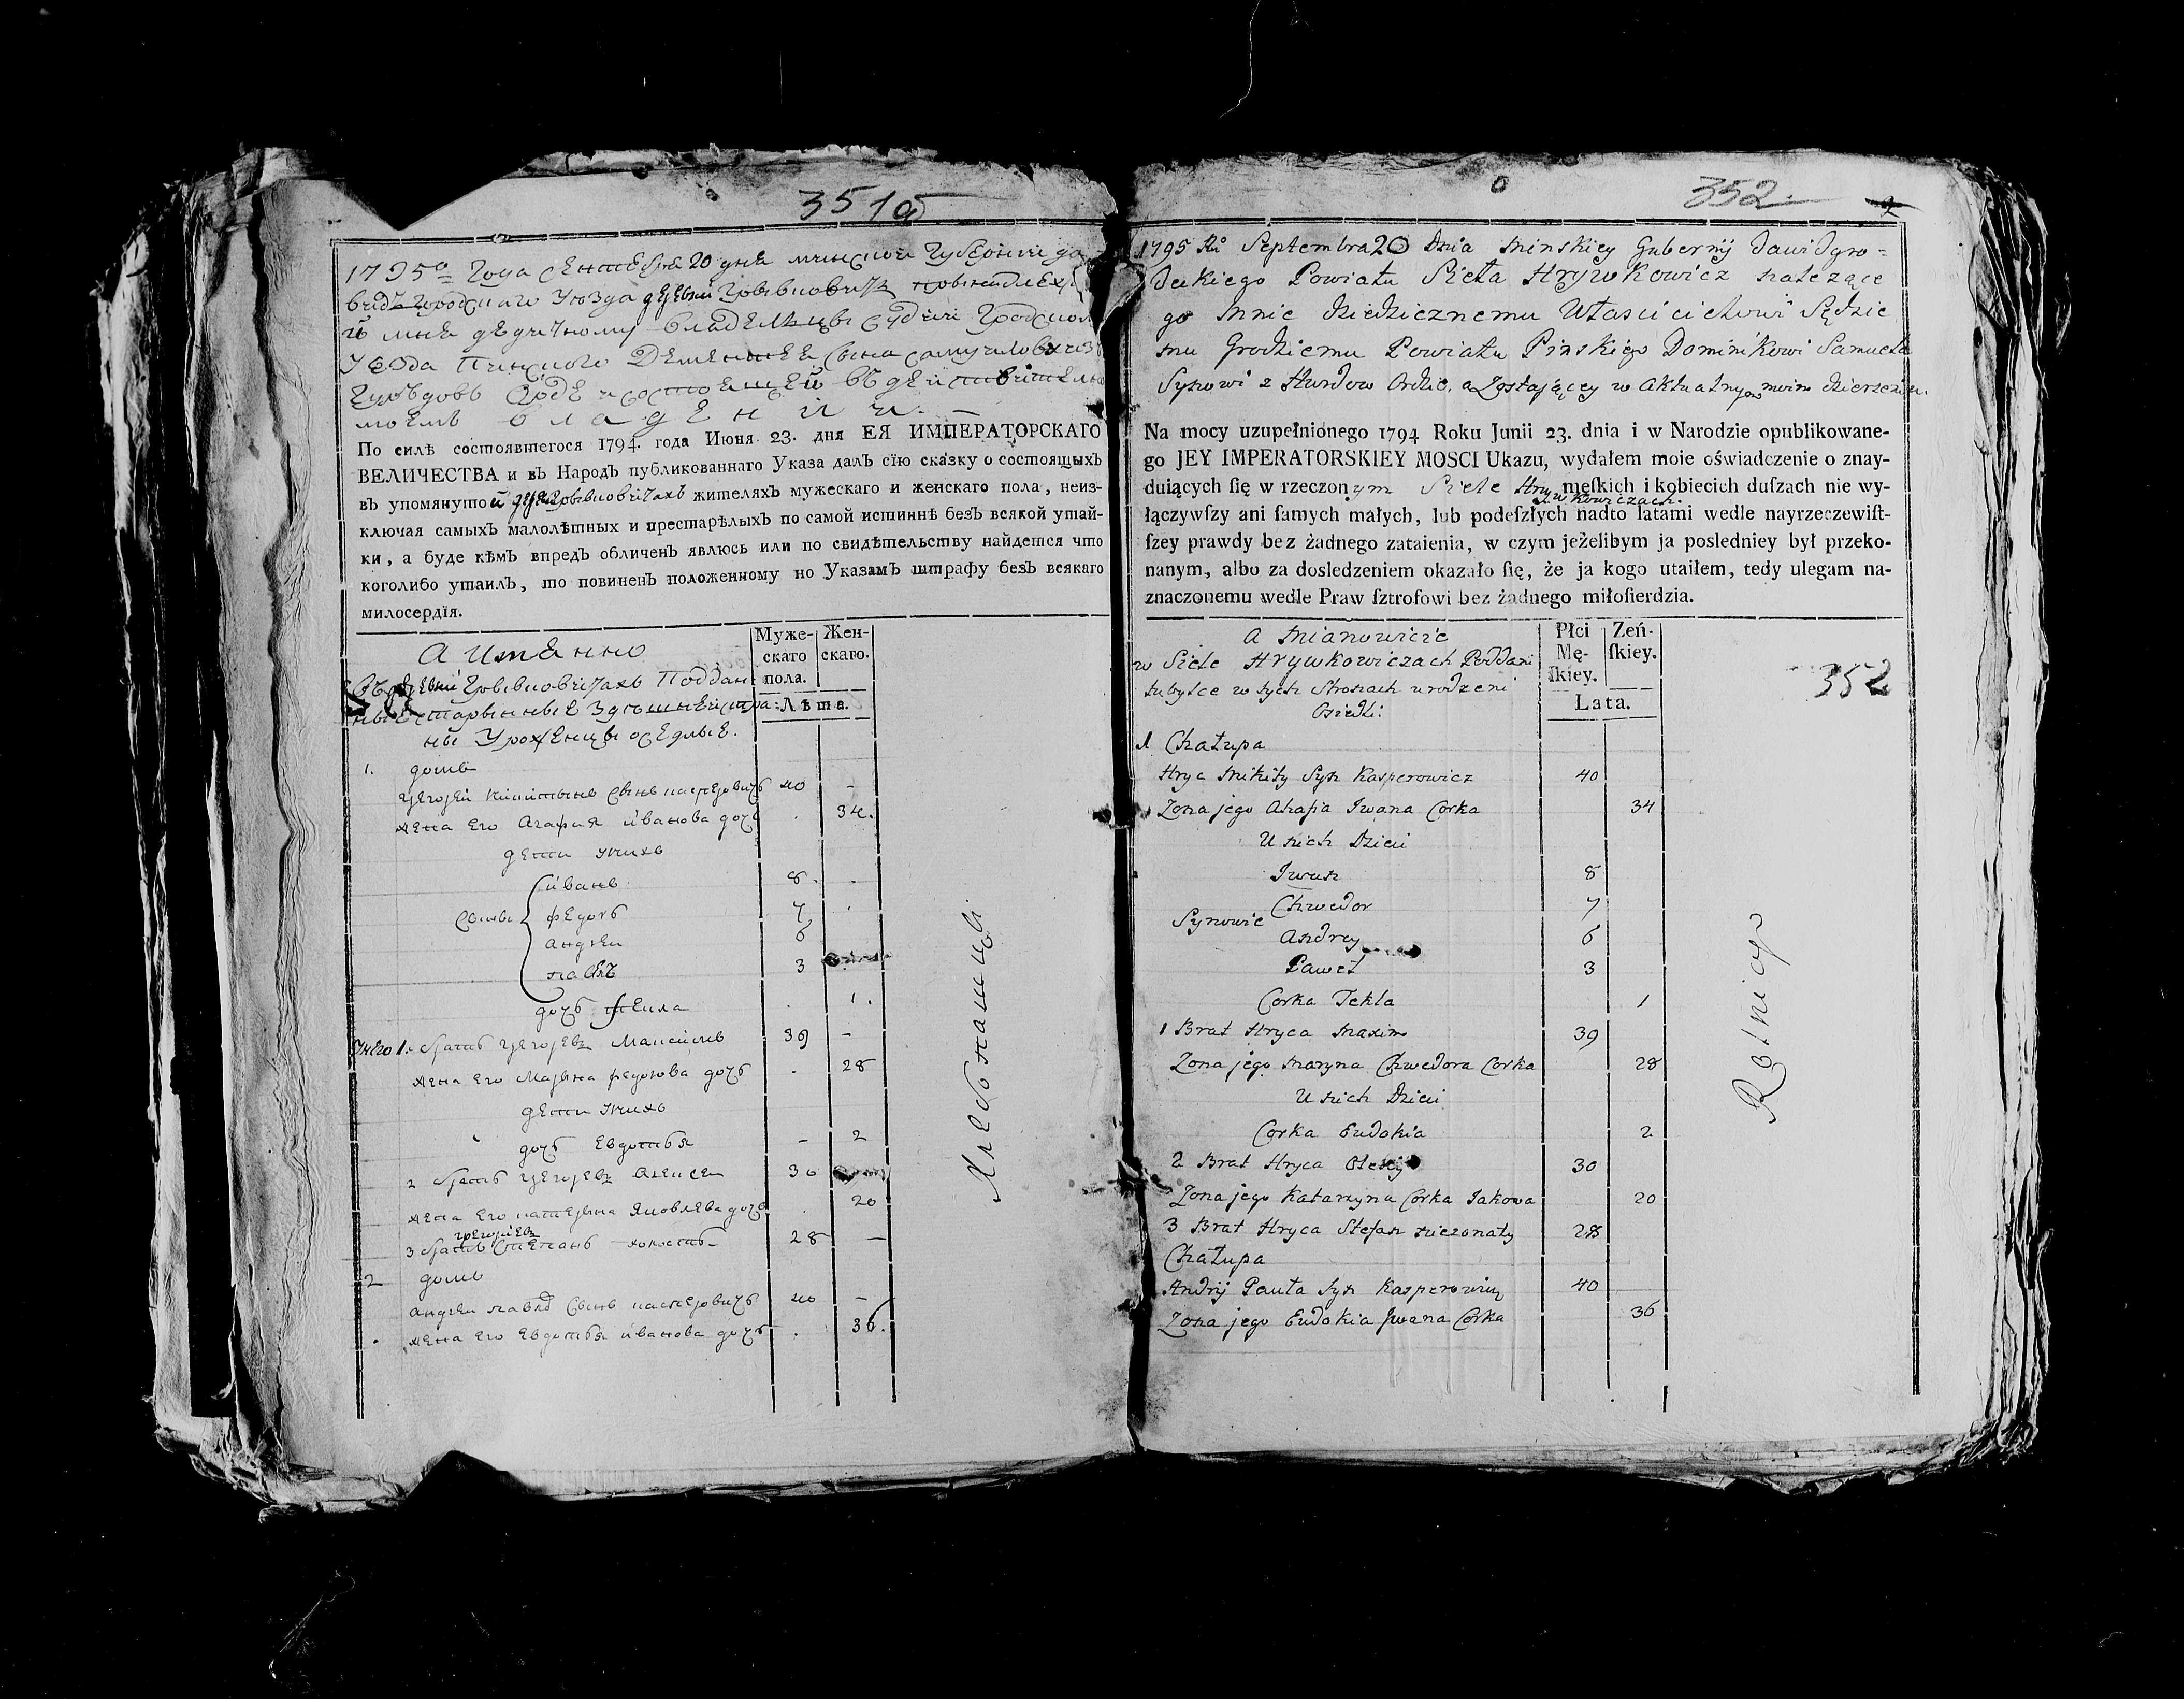 351 об
1795го Года Сентебря 20 дня минской Губернии да-
видъгородскаго Уезда деревни Грывковичъ принадлежа
й мне дедичному владельцы судии Гродском
Уезда Пинского
сына самуилова из
Гурвдовъ Орде и состоящей въ действител
моемъ владении. —
По силѣ состоявшегося 1794. года Июня 23. дня ЕЯ ИМПЕРАТОРСКАГО
ВЕЛИЧЕСТВА и въ Народъ публикованнаго Указа далъ сїю сказку о состоящыхъ
въ упомянутой дере Грывковичахъ жителяхъ мужескаго и женскаго пола, неиз-
ключая самыхъ малолѣтныхъ и престарѣлыхъ по самой истиннѣ безъ всякой утай-
ки, а буде кѣмъ впредъ обличенъ явлюсь или по свидѣтельству найдется что
коголибо утаилъ, то повиненъ положенному по Указамъ штрафу безъ всякаго
милосердїя.
А имянно
въ деревни Грывковичахъ Поддан
ные старынные здешней стра
ны Уроженцы оседлые.
Муже-
скаго
пола.
Жен-
скаго.
Лѣта.
1. домъ
Григорей Никитынъ сынъ касперовичъ 40 -
жена Его Агафия иванова дочь . 34.
дети ихъ
сыны
иванъ 8. .
федоръ 7 .
андрей 6
павелъ 3
дочь текла . 1.
У него 1. братъ григорев Максимъ 39 -
жена его Марына федорова дочь . 28
дети ихъ
дочь евдотья - 2
2 братъ григорев Алексей 30
жена его катерына яковлева дочь . 20
григорев
3 братъ Степанъ холостъ 28 —
2 домъ
андрей павла сынъ касперовичъ 40 -
жена его евдотья иванова дочь . 36.
Хлебопашцы
352.
1795 Ru Septembra 20 Dnia Minskiey Gubernij Dawidgro-
deckiego Powiatu Sieła Hrywkowicz należące
go Mnie dziedzicznemu Właścicielowi Sędzie
mu Grodzkiemu Powiatu Pinskiego Dominikowi Samuela
Synowi z Hurdow Ordzie, a Zostającey w Aktualnym moim dzierzeniu.
Na mocy uzupełnionego 1794 Roku Junii 23. dnia i w Narodzie opublikowane-
go JEY IMPERATORSKIEY MOSCI Ukazu, wydałem moie oświadczenie o znay-
duiących ſię w rzeczonym Siele Hrywkowiczach. męſkich i kobiecich duſzach nie wy-
łączywſzy ani ſamych małych, lub podeſzłych nadto latami wedle nayrzeczewiſt-
ſzey prawdy bez żadnego zataienia, w czym jeżelibym ja posledniey był przeko-
nanym, albo za dosledzeniem okazało ſię, że ja kogo utaiłem, tedy ulegam na-
znaczonemu wedle Praw ſztrofowi bez żadnego miłoſierdzia.
A Mianowicie
w Siele Hrywkowiczach Poddani
tubylce w tych Stronach urodzeni
Osiedli:
Płci
Mę-
ſkiey.
Zeń-
ſkiey.
Lata.
352
1 Chałupa
Hryc Mikity Syn Kasperowicz 40
Zona jego Ahapa Iwana Corka 34
U nich Dzieci
Iwan 8
Synowie
Chwedor 7
Andrey 6
Paweł 3
Corka Tekla 1
1 Brat Hryca Maxim 39
Zona jego Maryna Chwedora Corka 28
U nich Dzieci
Corka Eudokia 2
2 Brat Hryca Olexij 30
Zona jego Katarzyna Corka Jakowa 20
3 Brat Hryca Stefan niezonaty 28
Chałupa
Andrij Pawła Syn Kasperowicz 40
Zona jego Eudokia Iwana Corka 36
Rolnicy